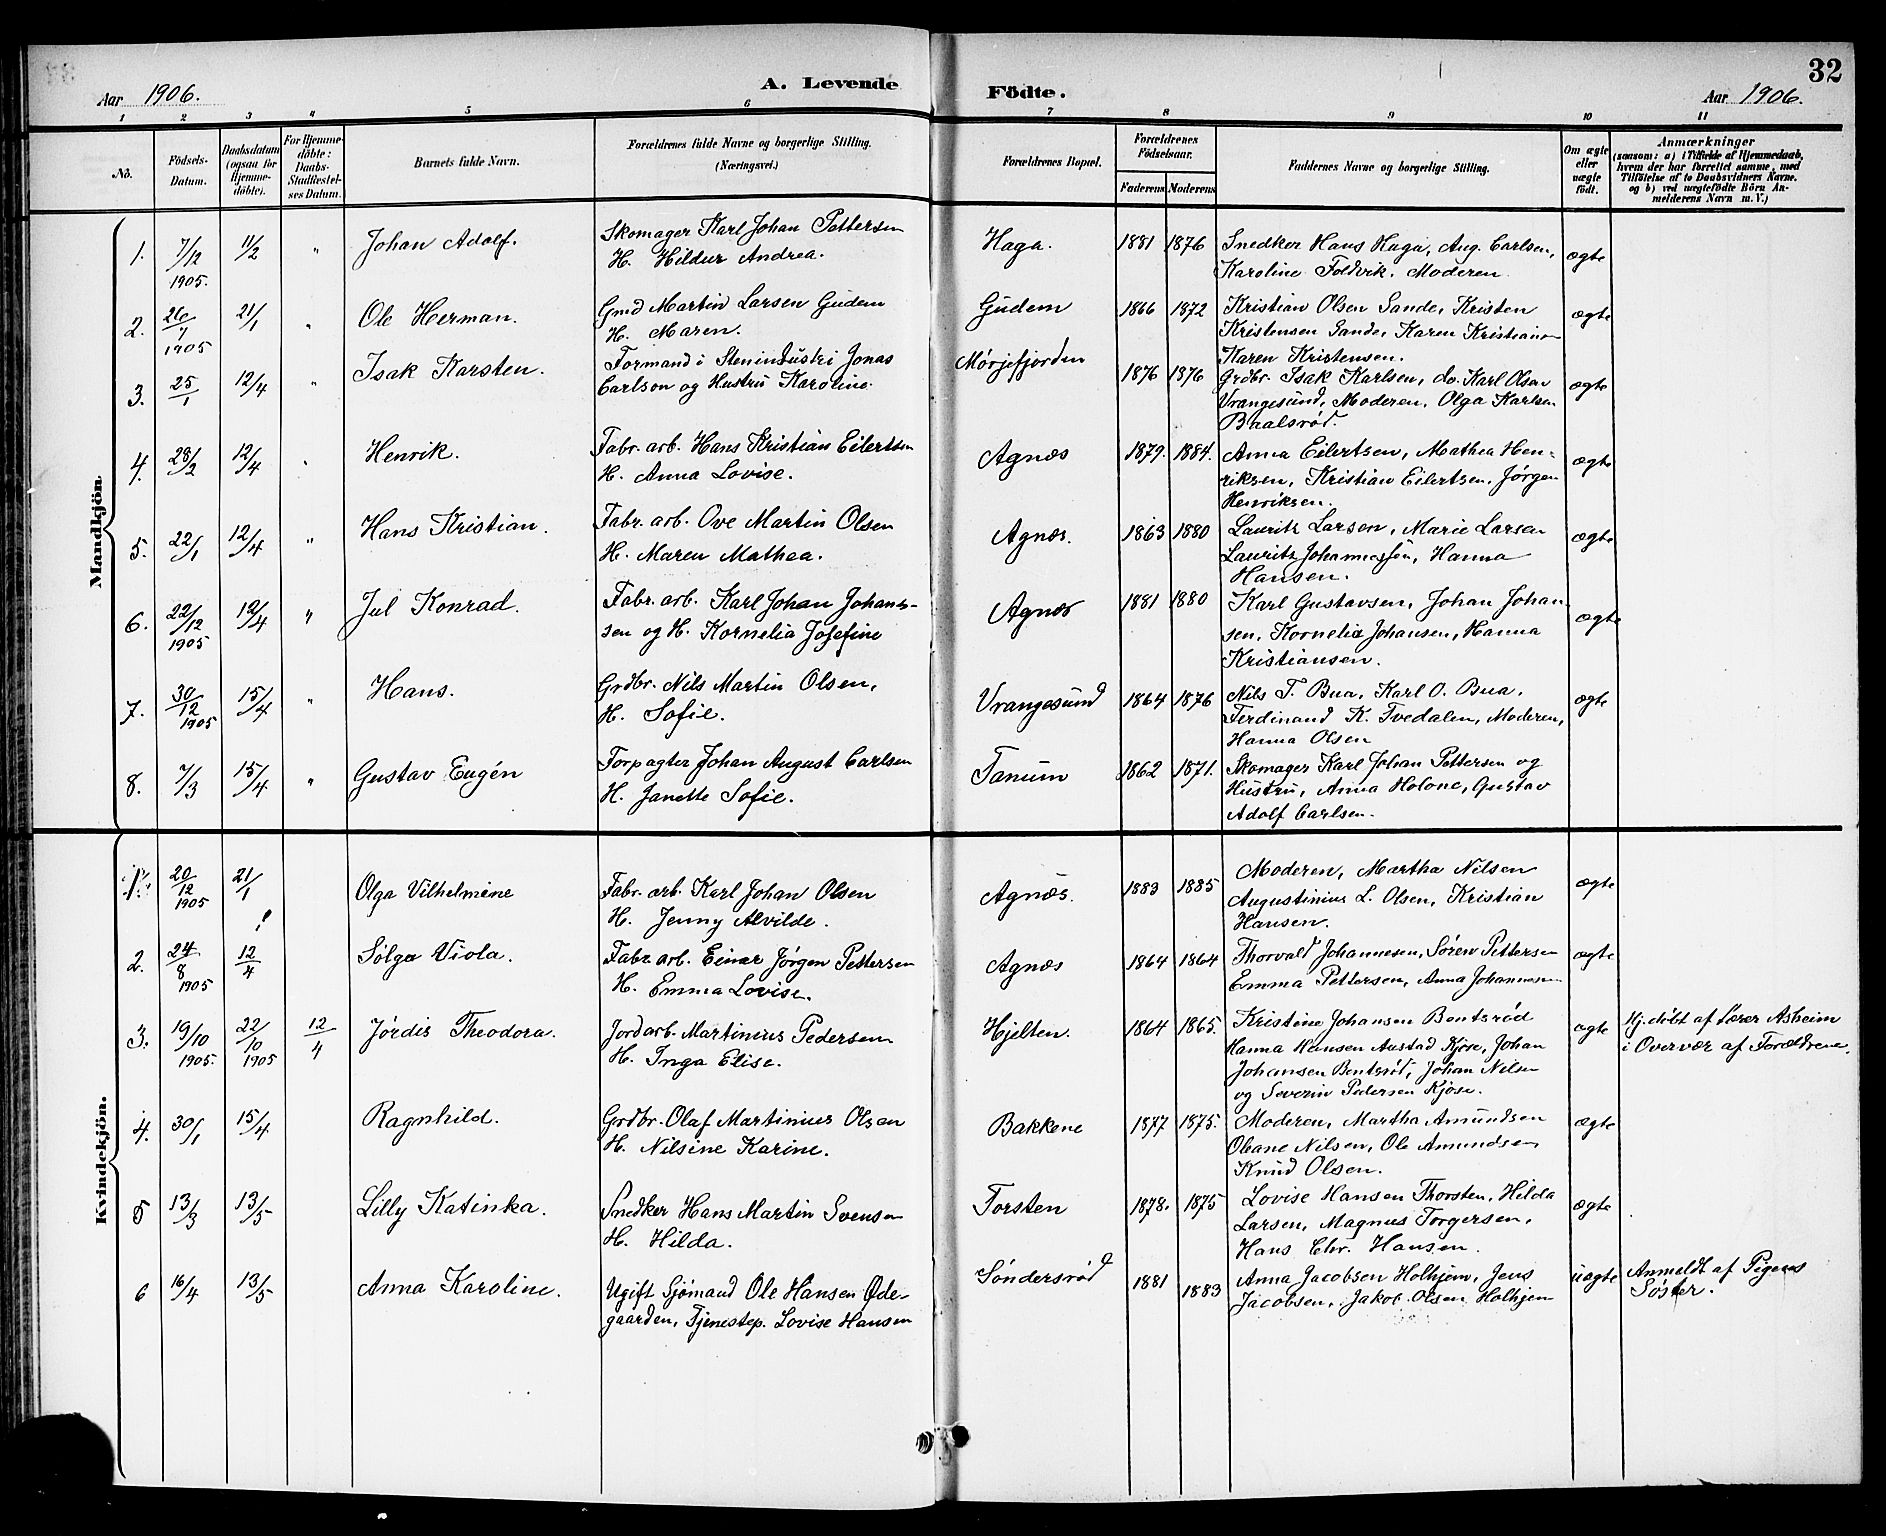 32
Aar 1906.
A. Levende Födte.
Aar 1906.
1 2 3 4 5 6 7 8 9 10 11
No.
Födsels-Datum.
Daabsdatum (ogsaa for Hjemmedöbte).
For Hjemmedöbte: Daabs-Stadfæstelses Datum.
Barnets fulde Navn.
Forældrenes fulde Navne og borgerlige Stilling. (Næringsvei.)
Forældrenes Bopæl.
Forældrenes Födselsaar.
Faderens Moderens
Faddernes Navne og borgerlige Stilling.
Om ægte eller uægte födt.
Anmærkninger
(saasom: a) i Tilfælde af Hjemmedaab,
hvem der har forrettet samme, med
Tilföielse af to Daabsvidners Navne.
og b) ved uægtefödte Börn An-
melderens Navn m. V.)
Mandkjön.
1. 7/12 1905. 11/2 " Johan Adolf. Skomager Karl Johan Pettersen Haga. 1881 1876 Snedker Hans Haga, Aug. Carlsen, ægte
H. Hildur Andrea. Karoline Foldvik, Moderen
2. 26/7 1905 21/1 " Ole Herman. Gmd Martin Larsen Gudem Gudem 1866 1872 Kristian Olsen Sande, Kristen ægte
H. Maren. Kristensen Sande, Karen Kristians-
Karen Kristensen.
3. 25/1 12/4 " Isak Karsten. Formand i Stenindustri Jonas Mørjefjorden 1876 1876 Grdbr. Isak Karlsen, do. Karl Olsen ægte
Carlson og Hustru Karoline. Vrangesund, Moderen, Olga Karlsen
Baalsrød.
4. 28/2 12/4 " Henrik. Fabr. arb. Hans Kristian Eilertsen Agnæs 1879. 1884. Anna Eilertsen, Mathea Hen- ægte
H. Anna Lovise. riksen, Kristian Eilertsen, Jørgen
Henriksen.
5. 22/1 12/4 " Hans Kristian. Fabr. arb. Ove Martin Olsen Agnæs. 1863 1880 Lauritz Larsen, Marie Larsen ægte
H. Maren Mathea. Lauritz Johannessen, Hanna
Hansen.
6. 22/12 1905 12/4 " Jul Konrad. Fabr. arb. Karl Johan Johans- Agnæs 1881 1880 Karl Gustavsen, Johan Johan- ægte
sen og H. Kornelia Josefine sen, Kornelia Johansen, Hanna
Kristiansen.
7. 30/12 1905 15/4 " Hans. Grdbr. Nils Martin Olsen, Vrangesund 1864 1876 Nils T. Bua, Karl O. Bua, ægte
H. Sofie. Ferdinand K. Tvedalen, Moderen,
Hanna Olsen
8. 7/3 15/4 " Gustav Eugén Forpagter Johan August Carlsen Tanum 1862 1871. Skomager Karl Johan Pettersen og ægte
H. Janette Sofie. Hustru, Anna Holone, Gustav
Adolf Carlsen.
Kvindekjön.
1. 20/12 1905 21/1 Olga Vilhelmine Fabr. arb. Karl Johan Olsen Agnæs. 1883 1885 Moderen, Martha Nilsen ægte
H. Jenny Alvilde. Augustinius L. Olsen, Kristian
Hansen.
2. 24/8 1905 ! 12/4 Sølga Viola. Fabr. arb. Einar Jørgen Pettersen Agnæs 1864 1864 Thorvald Johannesen, Søren Pettersen ægte
H. Emma Lovise. Emma Pettersen, Anna Johannesen
3. 19/10 1905. 22/10 1905 12/4 Jørdis Theodora. Jordarb. Martinius Pedersen Hjelten. 1864 1865. Kristine Johansen Bentsrød ægte Hj. døbt af Lærer Asheim
H. Inga Elise. Hanna Hansen Austad Kjøse, Johan i Overvær af Forældrene.
Johansen Bentsrød, Johan Nilsen
og Severin Pedersen Kjøse.
4. 30/1 15/4 Ragnhild. Grdbr. Olaf Martinius Olsen Bakkene 1877 1875. Moderen, Martha Amundsen ægte
H. Nilsine Karine. Oleane Nilsen, Ole Amundsen
Knud Olsen.
5 13/3 13/5 Lilly Katinka. Snedker Hans Martin Svensen Torsten 1878. 1875 Lovise Hansen Thorsten, Hilda ægte
H. Hilda. Larsen, Magnus Torgersen,
Hans Chr. Hansen.
6 16/4 13/5 Anna Karoline. Ugift Sjømand Ole Hansen Øde- Søndersrød 1881 1883 Anna Jacobsen Holhjem, Jens uægte Anmeldt af Pigens
gaarden, Tjenestep. Lovise Hansen Jacobsen, Jakob Olsen Holhjem Søster.